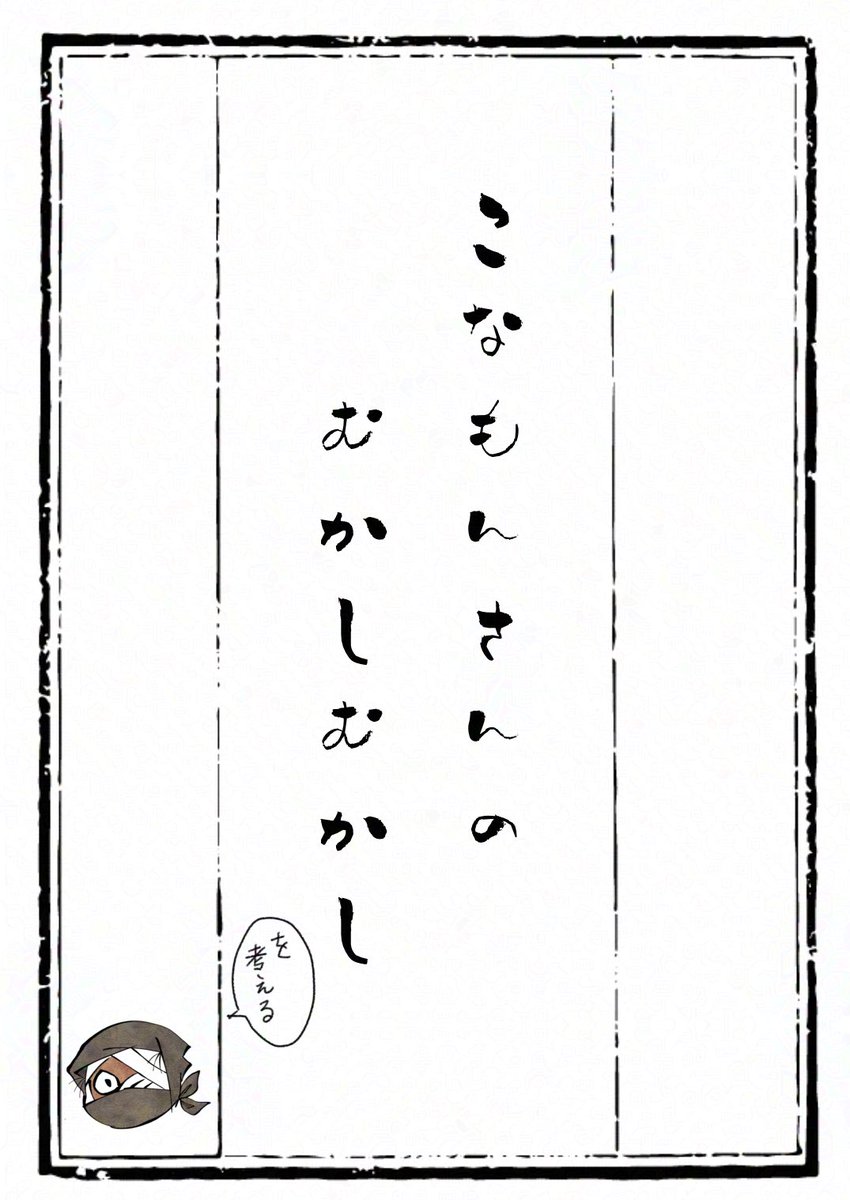 こなもんさんの
むかしむかし
を
考える